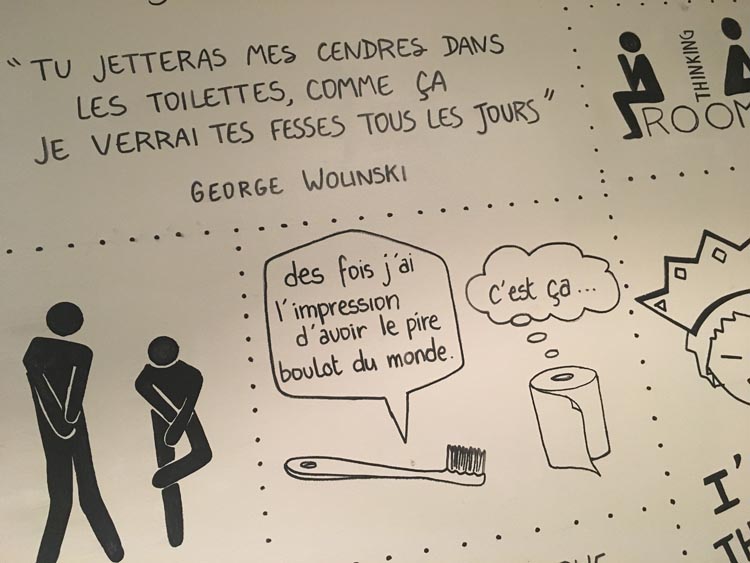 “TU JETTERAS MES CENDRES DANS
LES TOILETTES, COMME ÇA
JE VERRAI TES FESSES TOUS LES JOURS”
GEORGE WOLINSKI
THINKING
ROOM
des fois j'ai
l'impression
d'avoir le pire
boulot du monde.
c'est ça...
I'
TH